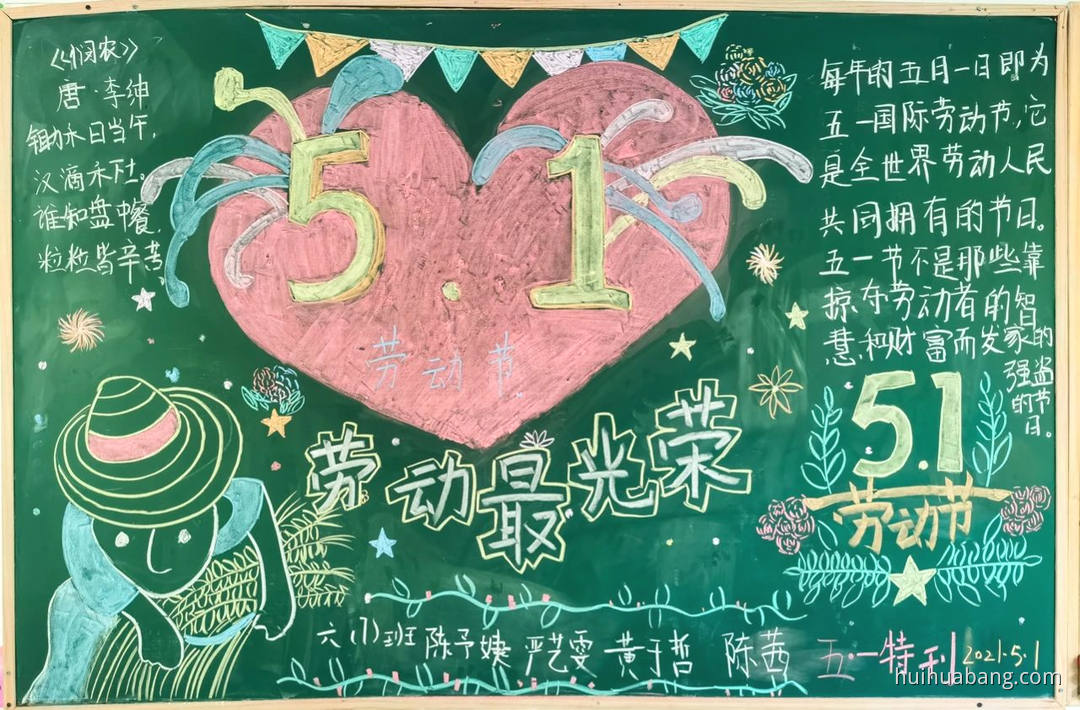 《悯农》
唐·李绅
锄禾日当午,
汉滴禾下土。
谁知盘中餐,
粒粒皆辛苦
5.1
劳动节。
劳动最光荣
每年的五月一日即为
五一国际劳动节,它
是全世界劳动人民
共同拥有的节日。
五一节不是那些靠
掠夺劳动者的智
慧和财富而发家的
强盗
的节
日。
5.1
劳动节
六(1)班 陈予婕 严艺雯 黄于哲 陈茜
五·一特刊 2021·5.1
huihuabang.com